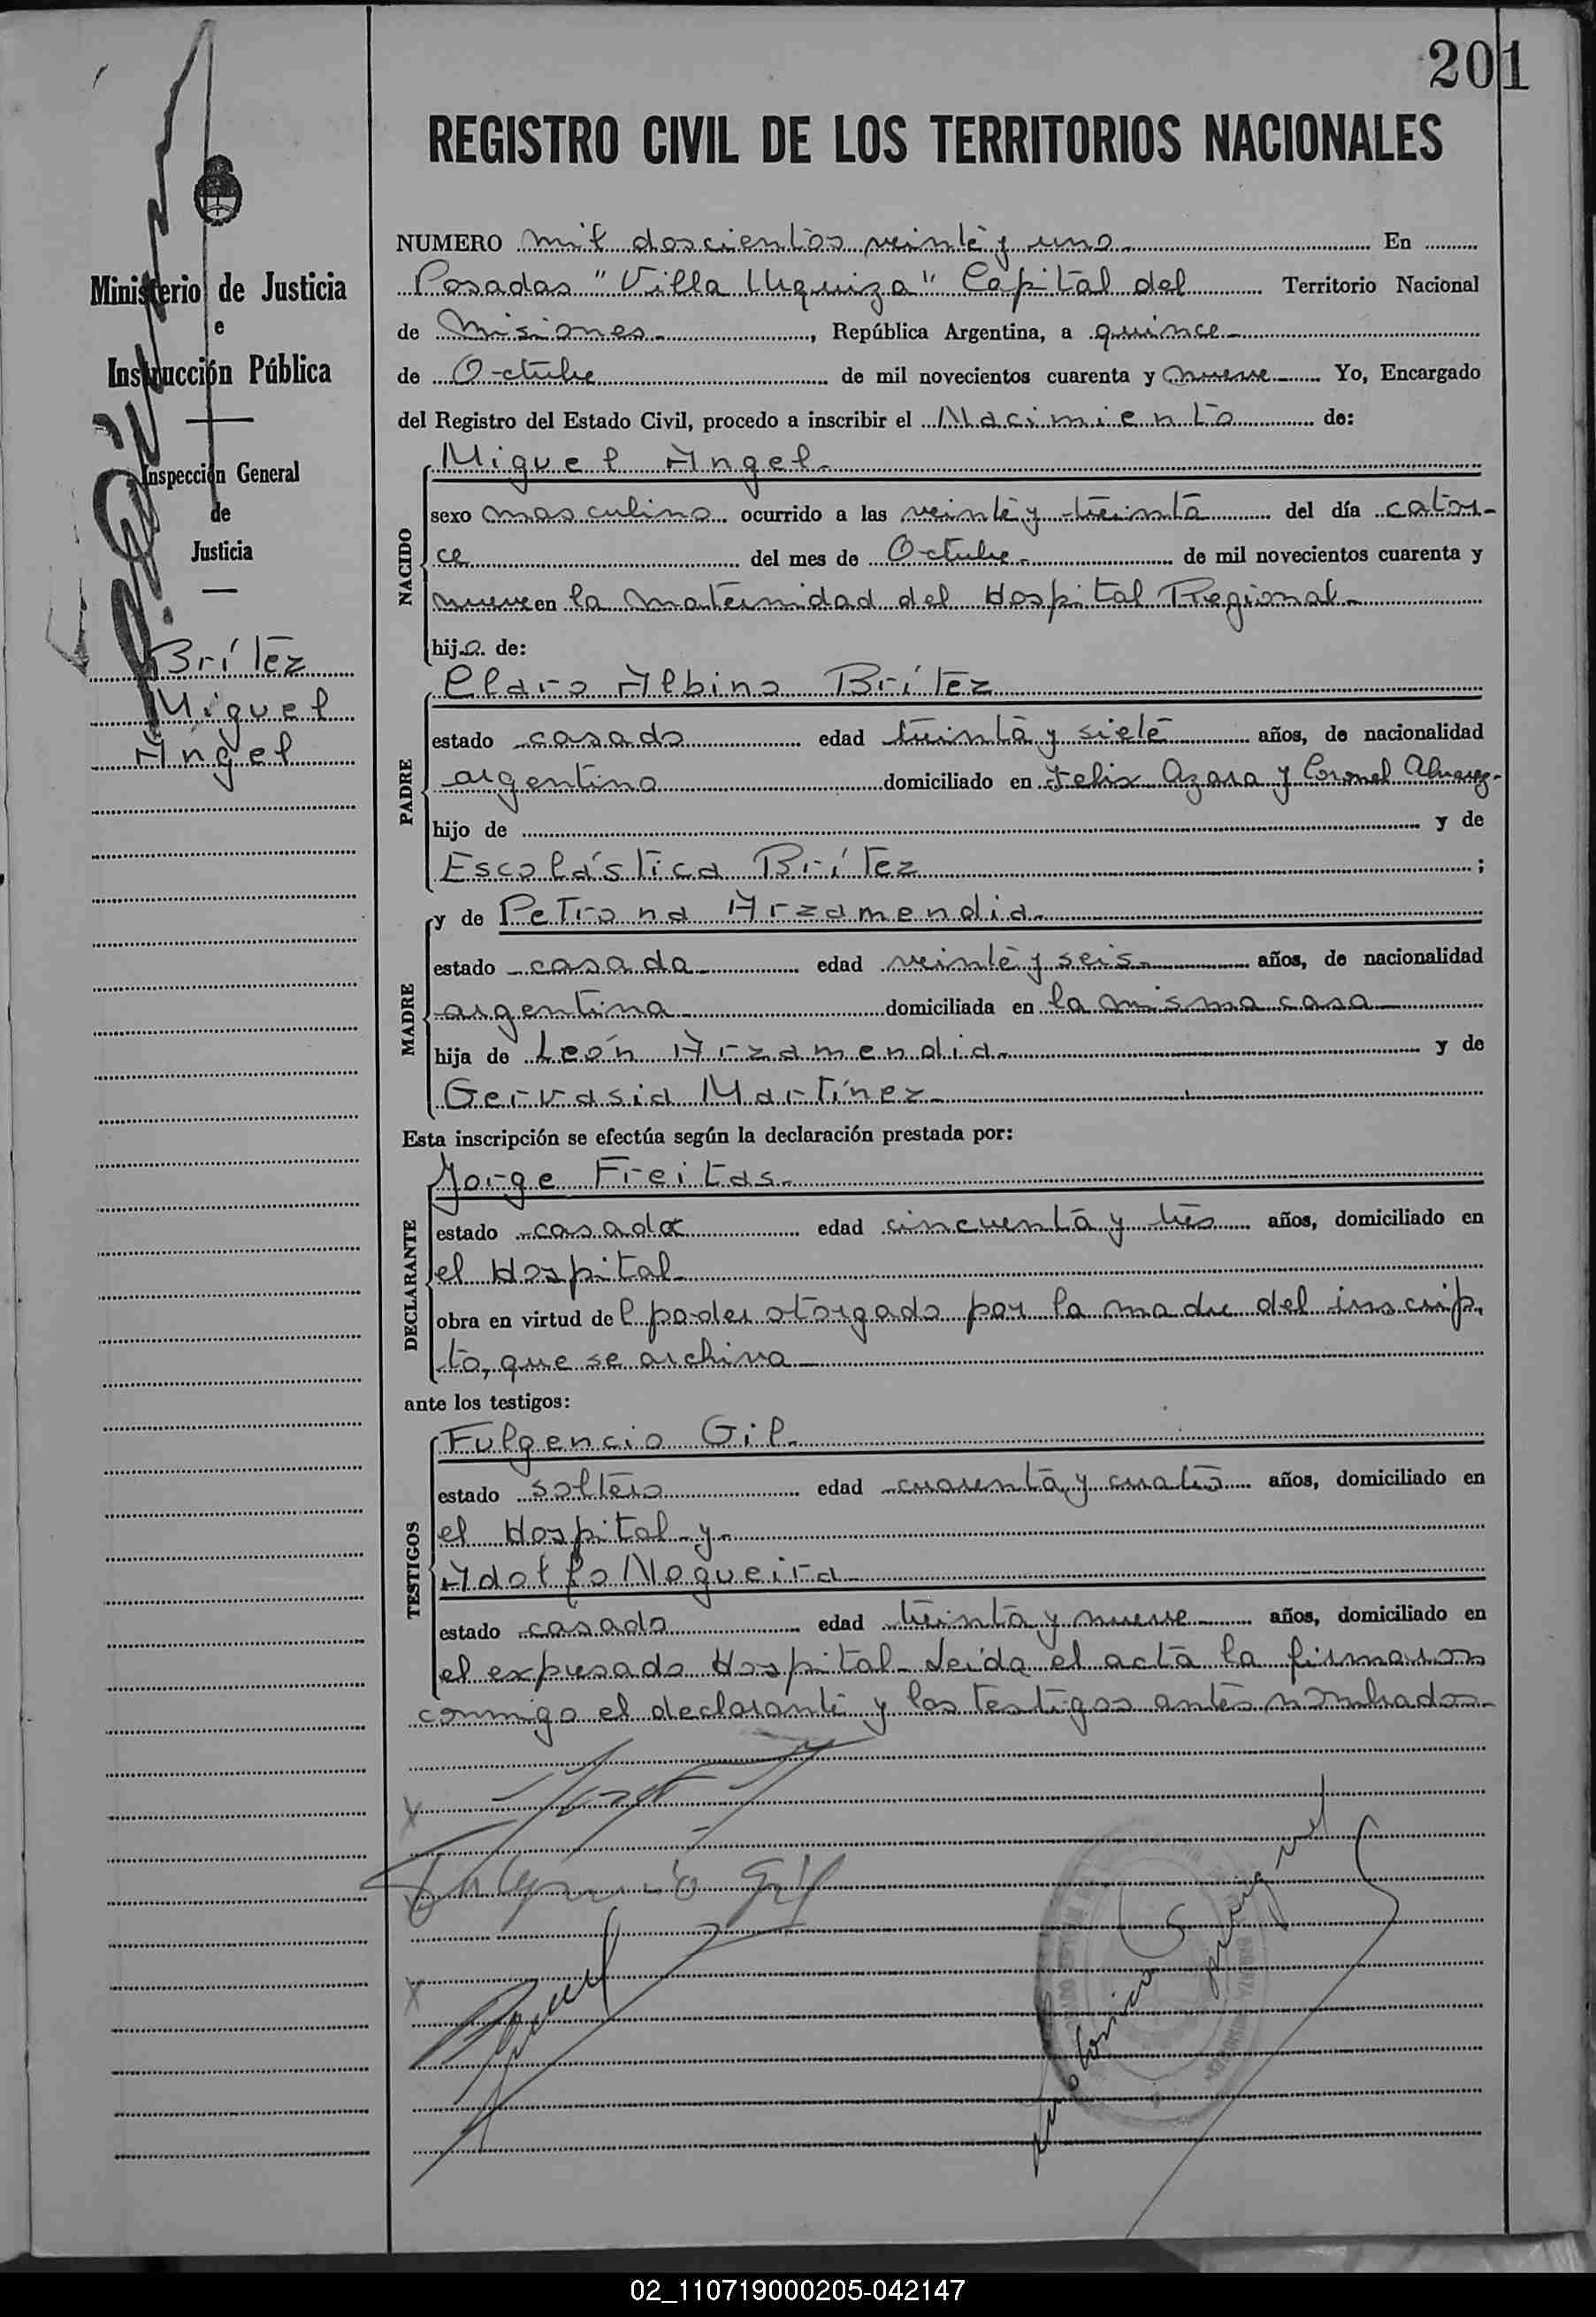 201
REGISTRO CIVIL DE LOS TERRITORIOS NACIONALES
Ministerio de Justicia
e
Instrucción Pública
Inspección General
de
Justicia
Brítez
Miguel
Angel
NUMERO mil doscientos veinte y uno En
Posadas "Villa Urquiza" Capital del Territorio Nacional
de Misiones, República Argentina, a quince
de Octubre de mil novecientos cuarenta y nueve Yo, Encargado
del Registro del Estado Civil, procedo a inscribir el Nacimiento de:
NACIDO
Miguel Angel
sexo masculino ocurrido a las veinte y treinta del día cator-
ce del mes de Octubre de mil novecientos cuarenta y
nueve en la maternidad del Hospital Regional
hijo de:
PADRE
Claro Albino Brítez
estado casado edad treinta y siete años, de nacionalidad
argentino domiciliado en Felix Azara y Coronel Alvarez
hijo de y de
Escolástica Brítez ;
MADRE
y de Petrona Arzamendia
estado casada edad veinte y seis años, de nacionalidad
argentina domiciliada en la misma casa
hija de León Arzamendia y de
Gervasia Martínez
Esta inscripción se efectúa según la declaración prestada por:
DECLARANTE
Jorge Freitas
estado casado edad cincuenta y tres años, domiciliado en
el Hospital
obra en virtud del poder otorgado por la madre del inscrip-
to, que se archiva
ante los testigos:
TESTIGOS
Fulgencio Gil
estado soltero edad cuarenta y cuatro años, domiciliado en
el Hospital y
Adolfo Nogueira
estado casado edad treinta y nueve años, domiciliado en
el expresado Hospital. Leída el acta la firmaron
conmigo el declarante y los testigos antes nombrados
Fulgencio Gil
02_110719000205-042147